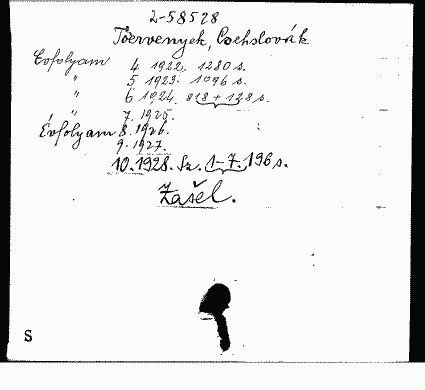 2-58528
Törvenyek, Csehslovák
Évfolyam 4 1922. 1280 s.
" 5 1923. 1096 s.
" 6 1924. 818 + 128 s.
" 7. 1925.
Évfolyam 8. 1926.
9. 1927.
10. 1928. Sz. 1-7. 196 s.
Zašel.
S